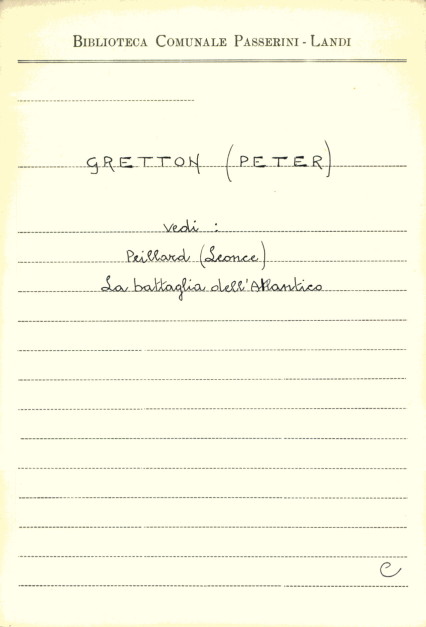 BIBLIOTECA COMUNALE PASSERINI - LANDI
GRETTON (PETER)
vedi :
Peillard (Leonce)
La battaglia dell'Atlantico
C